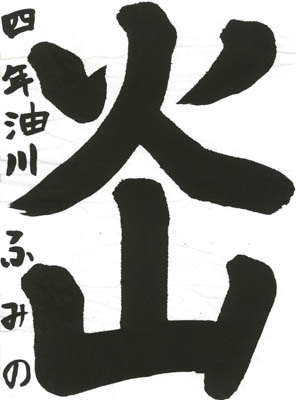 火山
四年油川ふみの